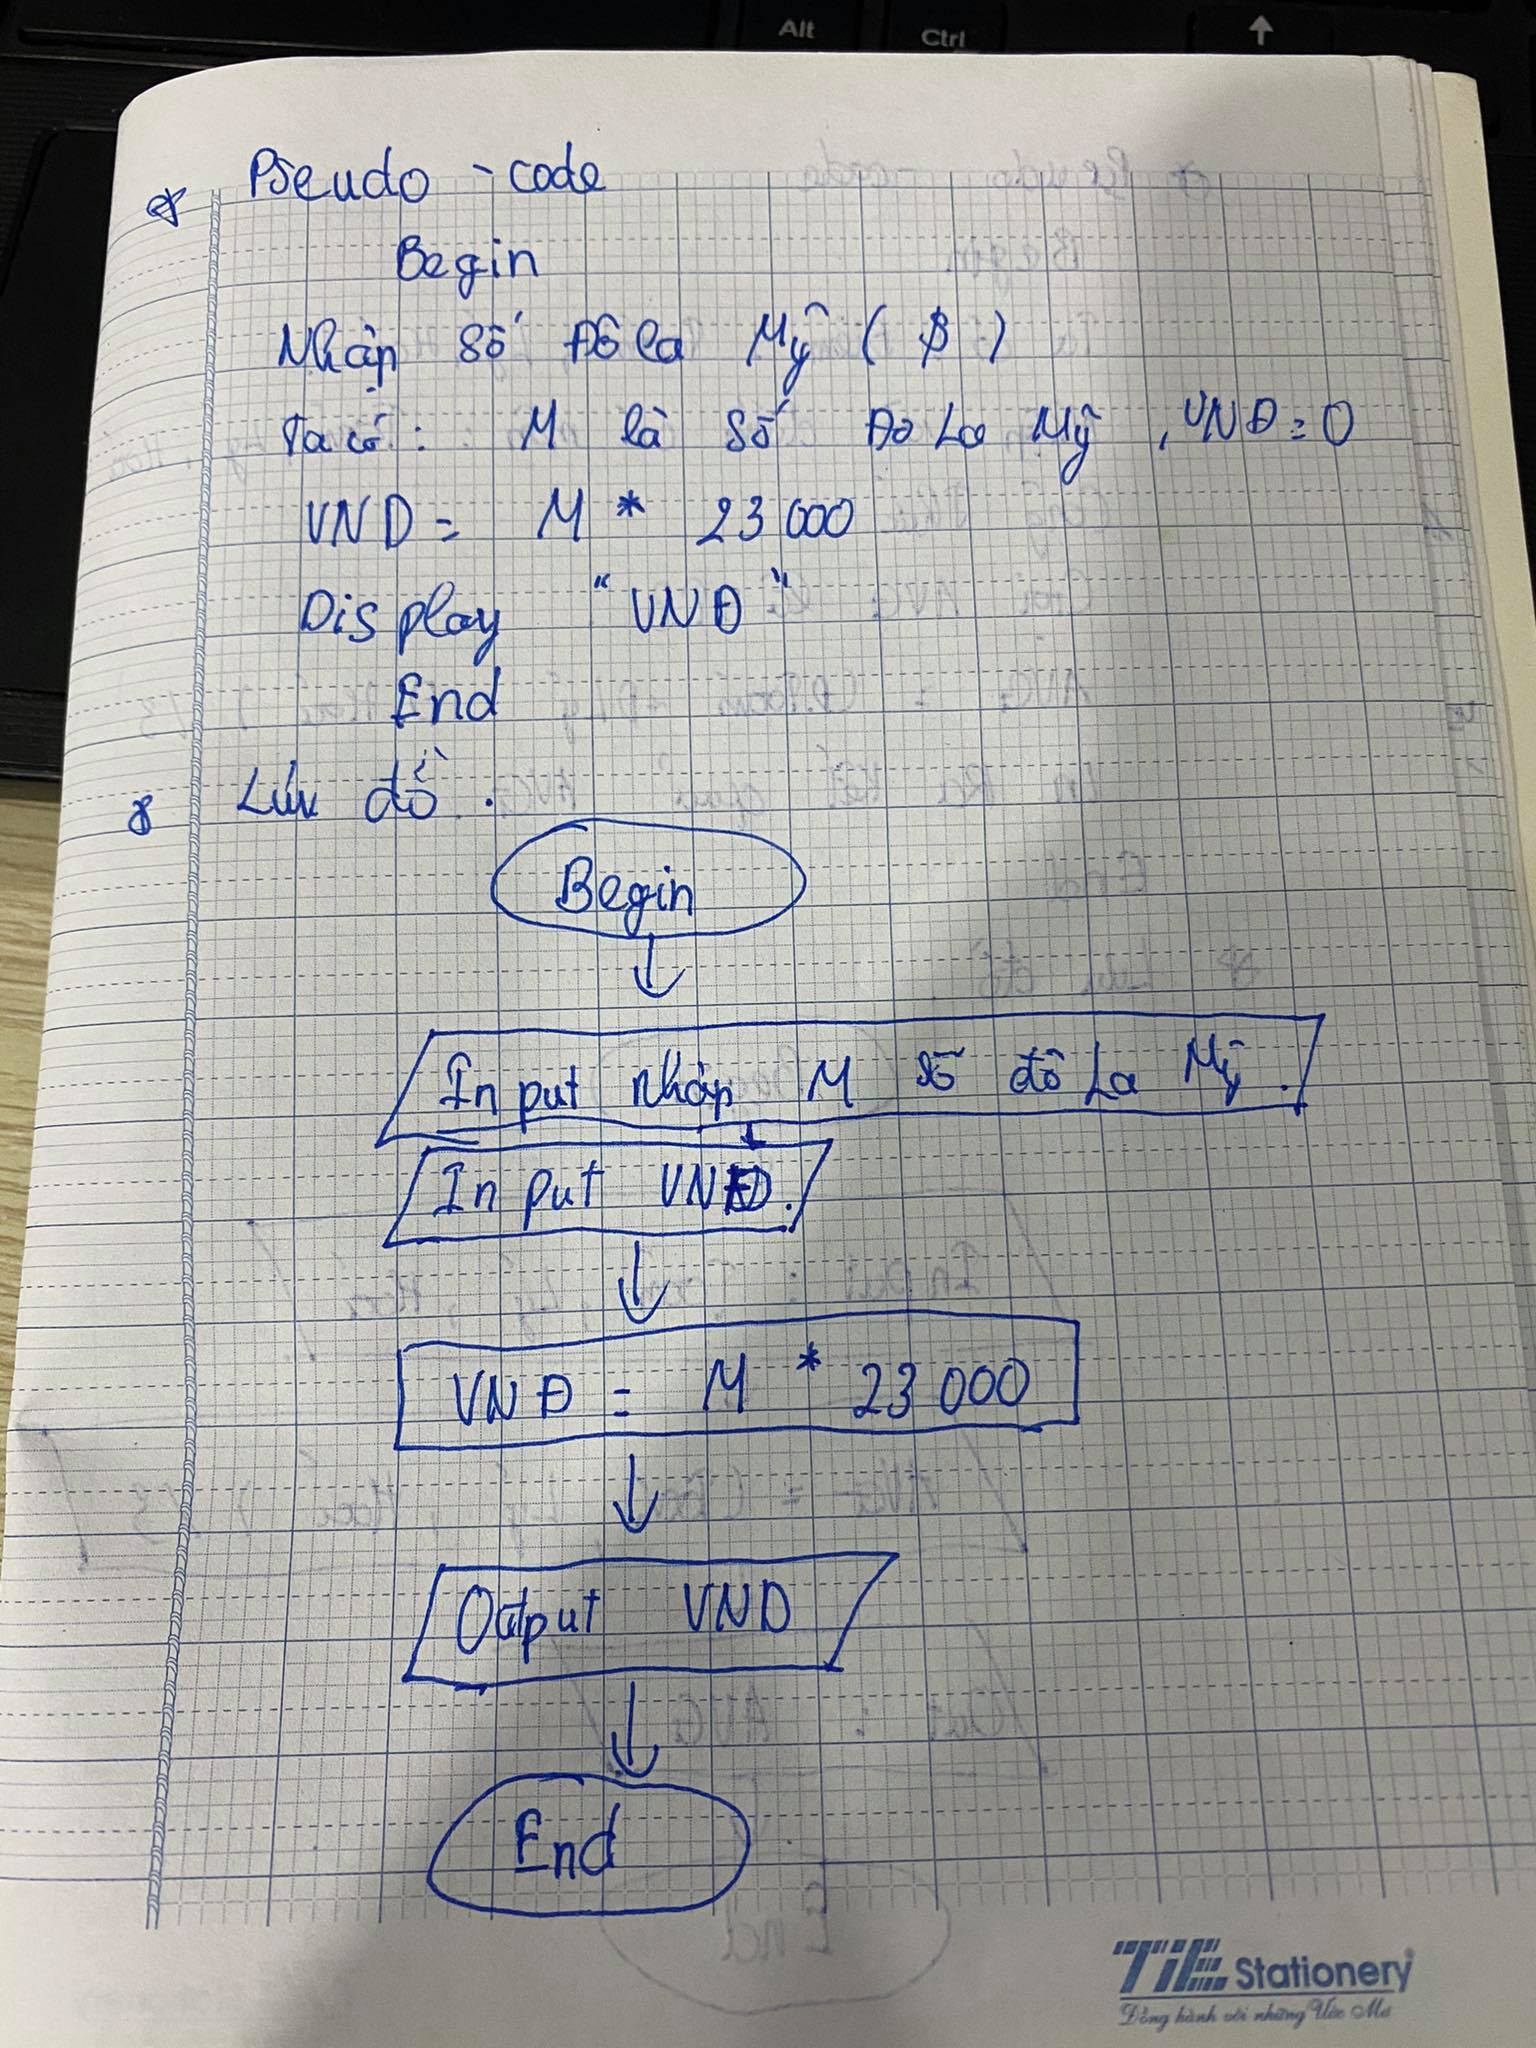 Alt
Ctrl
Pseudo - code
Begin
Nhập số Đô la Mỹ ( $ )
Ta có : M là số Đô La Mỹ , VNĐ = 0
VND = M * 23 000
Display "VNĐ"
End
Lưu đồ .
Begin
Input nhập M số đô La Mỹ .
Input VNĐ .
VNĐ = M * 23 000
Output VND
End
TiE Stationery
Đồng hành với những Ước Mơ